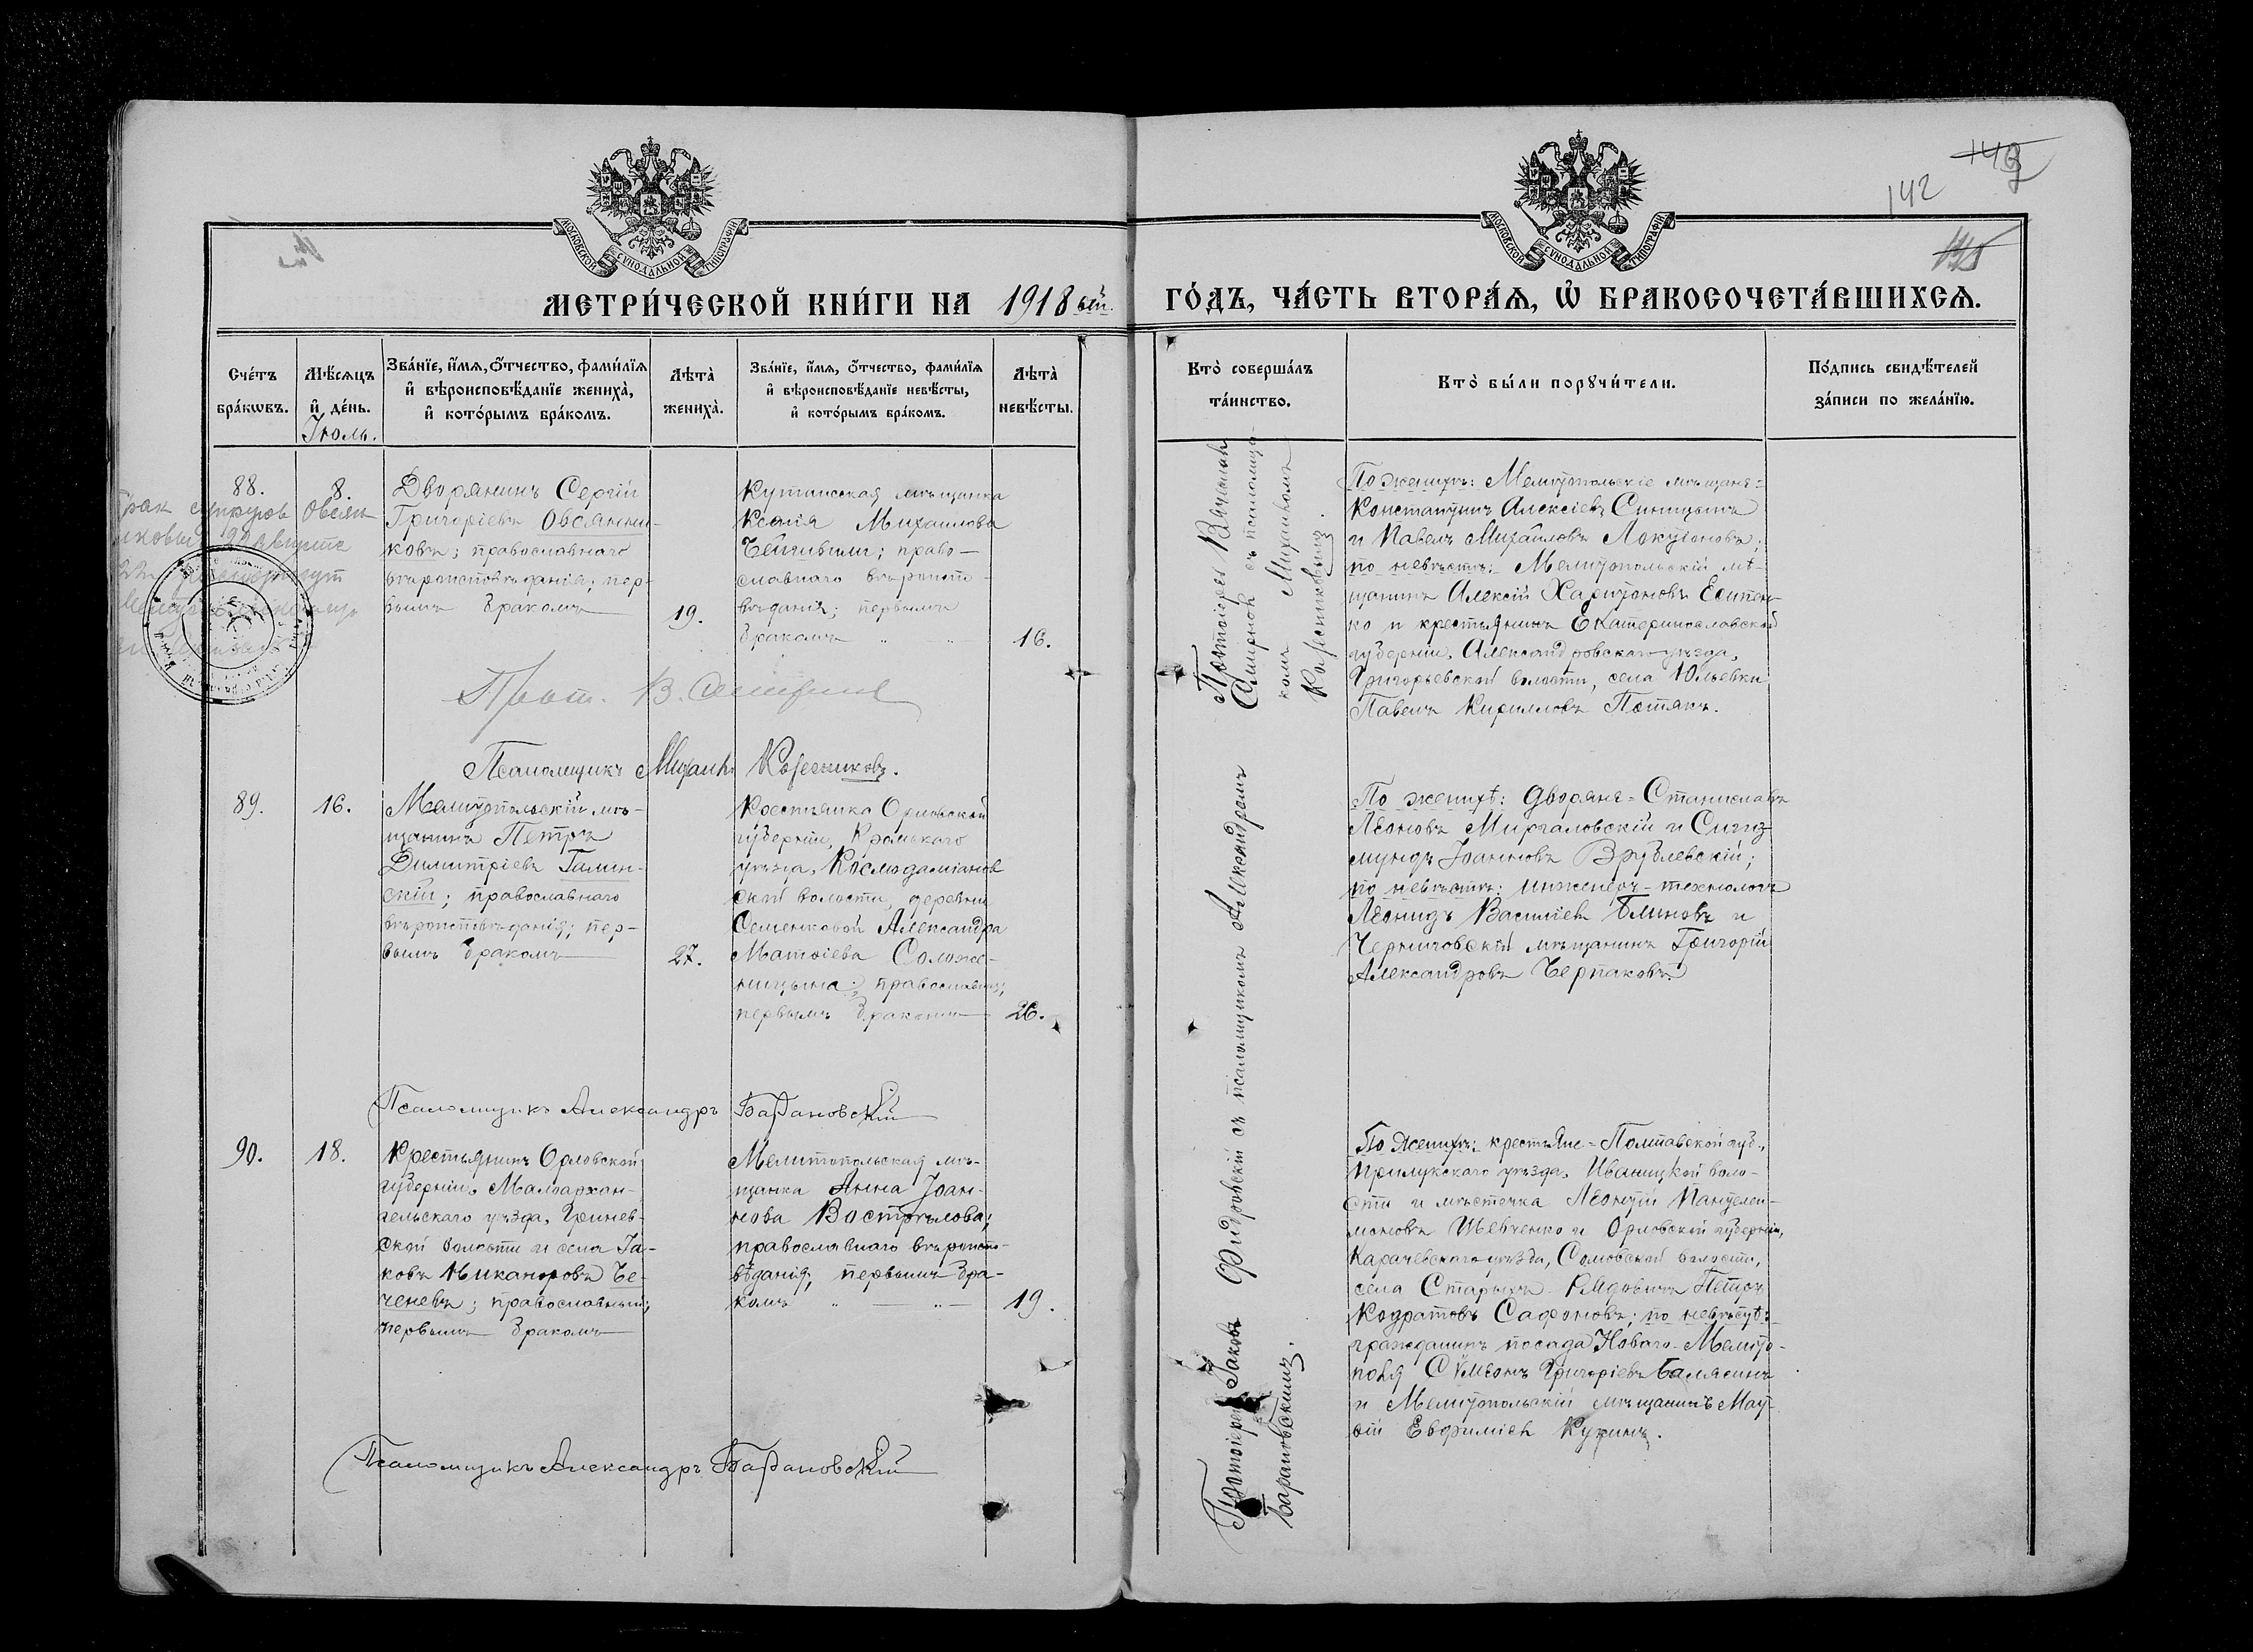 142
МОСКОВСКОЙ СѴНОДАЛЬНОЙ ТИПОГРАФІИ
МОСКОВСКОЙ СѴНОДАЛЬНОЙ ТИПОГРАФІИ
МЕТРИ́ЧЕСКОЙ КНИ́ГИ НА 1918 ый.
ГО́ДЪ, ЧА́СТЬ ВТОРА́Я, Ѡ҆ БРАКОСОЧЕТА́ВШИХСЯ.
Сче́тъ бра́кѡвъ.
Мѣ́сяцъ и҆ де́нь.
Іюль.
Зва́нїе, и҆́мя, ѻ҆́тчество, фами́лїя
и҆ вѣроисповѣ́данїе жениха̀,
и҆ кото́рымъ бра́комъ.
Лѣта̀ жениха̀.
Зва́нїе, и҆́мя, ѻ҆́тчество, фами́лїя
и҆ вѣроисповѣ́данїе невѣ́сты,
и҆ кото́рымъ бра́комъ.
Лѣта̀ невѣ́сты.
Кто̀ соверша́лъ
та́инство.
Кто̀ бы́ли порꙋчи́тели.
По́дпись свидѣ́телей
за́писи по жела́нїю.
88.
8.
Дворянинъ Сергій
Григоріевъ Овсянни-
ковъ; православнаго
вѣроисповѣданія; пер-
вымъ бракомъ
19.
Кутаисская мѣщанка
Ксенія Михаилова
право-
славнаго вѣроиспо-
вѣданія; первымъ
бракомъ
16.
Прот. В.
Псаломщикъ Михаилъ Колесниковъ.
Протоіерей
съ псаломщи-
комъ Михаиломъ
Колесниковымъ.
По женихѣ: Мелитопольскіе мѣщане-
Константинъ Алексіевъ Синицынъ
и Павелъ Михаиловъ Локтіоновъ;
по невѣстѣ: Мелитопольскій мѣ-
щанинъ Алексій Харитоновъ Есипен-
ко и крестьянинъ Екатеринославской
губерніи, Александровскаго уѣзда,
Григорьевской волости, села Юльевки
Павелъ Кирилловъ Потякъ.
89.
16.
Мелитопольскій мѣ-
щанинъ Петръ
Димитріевъ Галин-
скій; православнаго
вѣроисповѣданія; пер-
вымъ бракомъ
27.
Крестьянка Орловской
губерніи, Кромскаго
уѣзда, Космодаміанов
ской волости, деревни
Семенковой Александра
Матѳіева Соломе-
ницына; православн;
первымъ бракомъ
26.
Псаломщикъ Александръ Барановскій
Протоіерей Іаковъ Фидровскій съ псаломщикомъ Александромъ
Барановскимъ.
По женихѣ: дворяне-Станиславъ
Леоновъ Миргаловскій и Сигиз
мундъ Іоанновъ Врублевскій;
по невѣстѣ: инженеръ-технологъ
Леонидъ Василіевъ Блиновъ и
Черниговскій мѣщанинъ Григорій
Александровъ Черпаковъ.
90.
18.
Крестьянинъ Орловской
губерніи, Малоархан-
гельскаго уѣзда, Гринев-
ской волости и села Іа-
ковъ Никаноровъ Че-
ченевъ; православный;
первымъ бракомъ
Мелитопольская мѣ-
щанка Анна Іоан-
нова Вострѣлова;
православнаго вѣроиспо-
вѣданія; первымъ бра-
комъ
19.
Псаломщикъ Александръ Барановскій
По женихѣ: крестьяне-Полтавской губ.,
Прилукскаго уѣзда, Иваницкой воло-
сти и мѣстечка Леонтій Пантелеи-
моновъ Шевченко и Орловской губерніи,
Карачевскаго уѣзда, Соловской волости,
села Старыхъ Рядовичъ Петръ
Кодратовъ Сафоновъ; по невѣстѣ:
гражданинъ посада Новаго-Мелито-
поля Сѵмеонъ Григоріевъ Балясинъ
и Мелитопольскій мѣщанинъ Мат-
ѳій Евфиміевъ Куринъ.